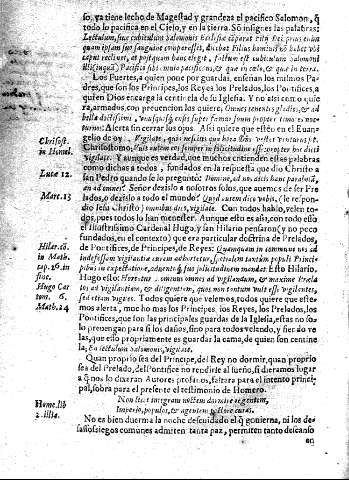 so, ya tiene lecho de Magestad y grandeza el pacifico Salomon, q̃
todo lo pacifica en el Cielo, y en la tierra. Sõ insignes las palabras:
Lectulum, sive cubiculum Salomonis Ecclesia caput
quam ipsam suo sanguine dicebat Filius hominis nõ habet vbi
caput reclinet, at postquam factum est cubiculum Salomonis
Pacifici pacificans, & que in cælo, & que in terra.
Los Fuertes, a quien pone por guardas, enseñan los mismos Pa-
dres, que son los Principes, los Reyes los Prelados, los Pontifices, a
quien Dios encarga la centinela de su Iglesia. Y no assi como quie
ra, armados, con preuencion los quiere, Omnes tenentes gladios, & ad
bella
Alerta sin cerrar los ojos. Assi quiere que estèn en el Euan-
gelio de oy
Chrisostomo, Vult autem eos semper in solicitudine esse propter hoc dicit
vigilate. Y aunque es verdad, que muchos entienden estas palabras
como dichas a todos, fundados en la respuesta que dio Christo a
san Pedro quando se lo preguntò: Domine, ad nos dicis hanc parabolã,
an ad omnes? Señor dezislo a nosotros solos, que auemos de ser Pre
lados, o dezislo a todo el mundo? Quod autem dico vobis, (le respõ-
dio Iesu Christo) omnibus dico, vigilate. Con todos hablo, velen to-
dos, pues todos lo han menester. Aunque esto es assi, con todo esso
el Illustrissimo Cardenal Hugo, y san Hilario pensaron (y no poco
fundados, en el contexto) que era particular doctrina de Prelados,
de Pontifices, de Principes, de Reyes: Quamquam in commune nos ad
indefessam vigilantiæ curam adhortetur, specialem tantum populi Princi-
pibus in expectatione, aduentuq̃ suo solicitudinem mandat. Esto Hilario.
Hugo esto: Hortatur omnes ad vigilandum, & maxime Præla-
tos ad vigilantiam, & diligentiam, quos non tantum vult esse vigilantes,
sed etiam vigiles. Todos quiere que velemos, todos quiere que este-
mos alerta, mucho mas los Principes, los Reyes, los Prelados, los
Pontifices, que son las principales guardas de la Iglesia, estas no so-
lo preuengan para si los daños, sino para todos velando, y sier do ve
las, que esso propriamente es guardar la cama, de quien son centine
la, En lectulum Salomonis, vigilate.
Quan proprio sea del Principe, del Rey no dormir, quan proprio
sea del Prelado, del Pontifice no rendirse al sueño, si dieramos lugar
a q̃ nos lo dixeran Autores profanos, saltara para el intento princi-
pal, sobra para el presente el testimonio de Homero.
Non licet integram noctem dormire regentem,
Imperio, populos, & agentem pectore curas.
No es bien duerma la noche descuidado el q̃ gouierna, ni los de-
sassossiegos comunes admiten tanta paz, permiten tanto descanso
en
Chrisost.
in Homel.
Lucæ 12.
Matt. 13
Hilar. cõ.
in Math.
cap. 26. in
fine.
Hugo Car
ton. 6.
Math. 24
Home. lib
2. illia.